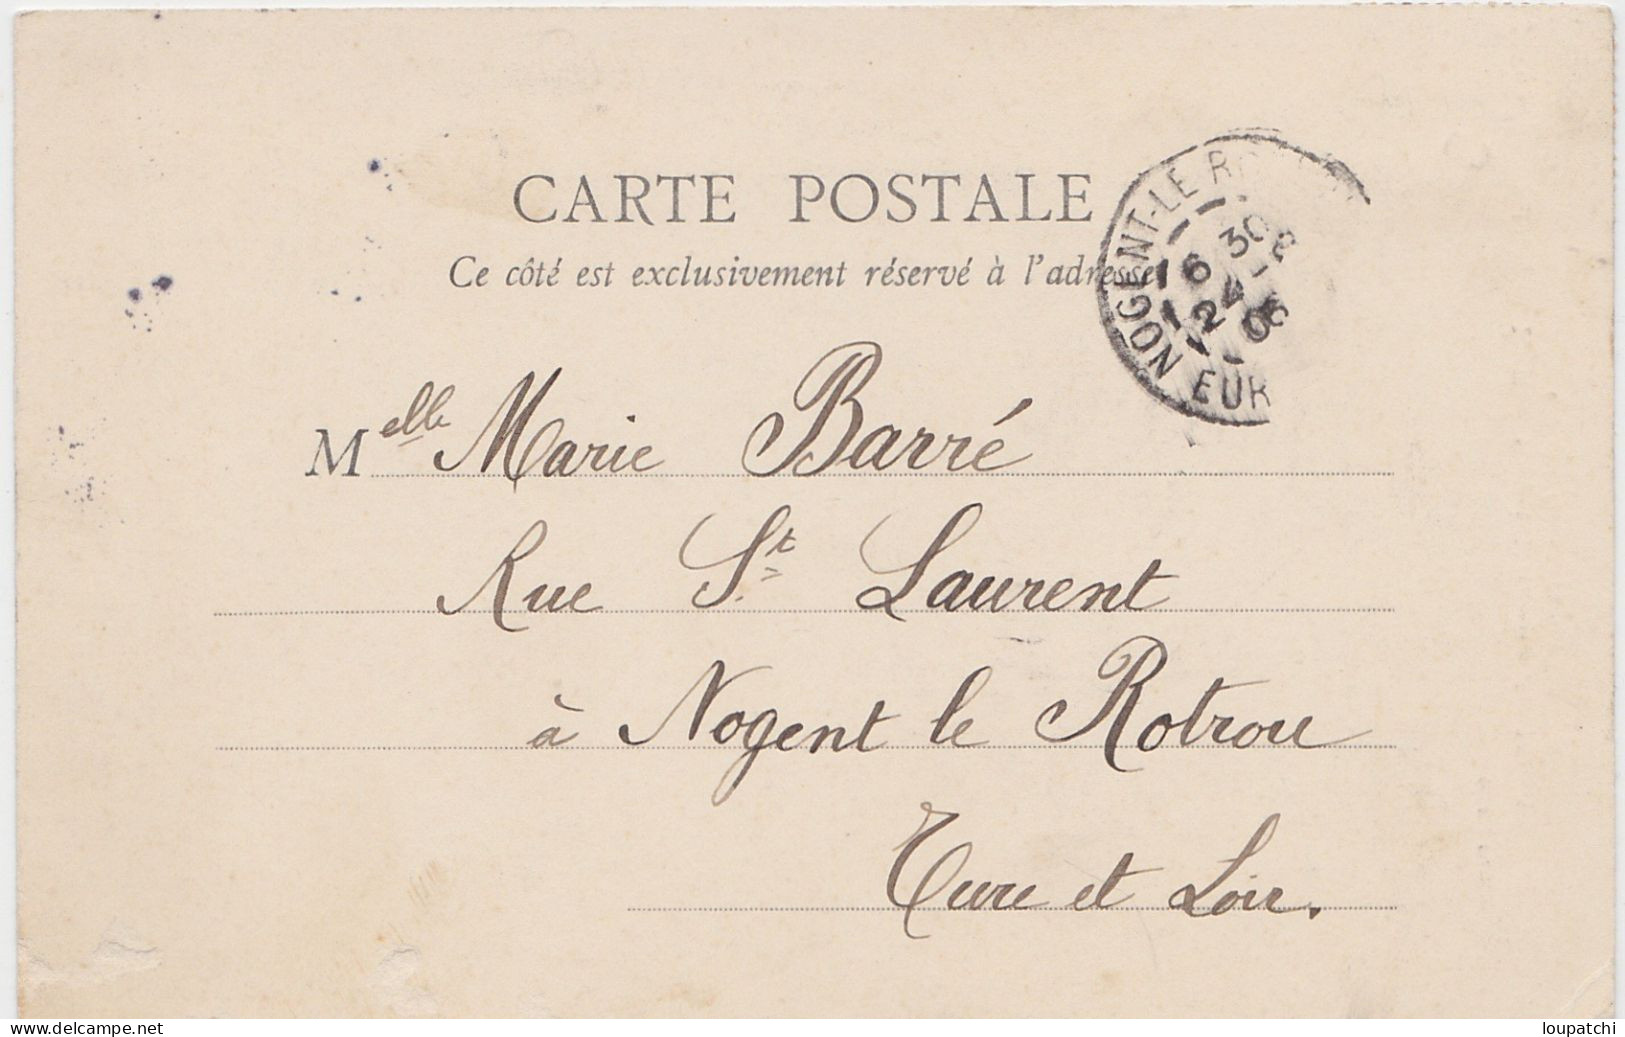 CARTE POSTALE
Ce côté est exclusivement réservé à l'adresse
NOGENT-LE R
16 30
12
06
EUR
Melle Marie Barré
Rue St Laurent
à Nogent le Rotrou
Eure et Loir.
www.delcampe.net
loupatchi